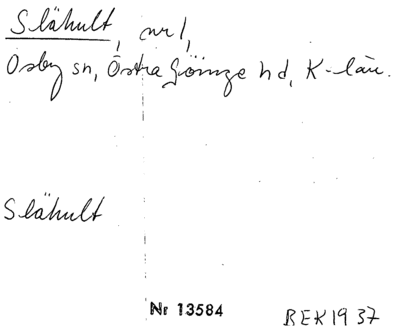 Slähult, nr 1,
Osby sn, Östra Göinge hd, K-län.
Slähult
Nr 13584
BEK 1937